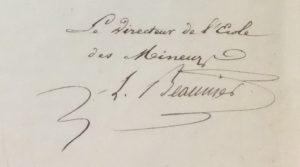 Le Directeur de l'Ecole
des Mineurs
L. Beaunier